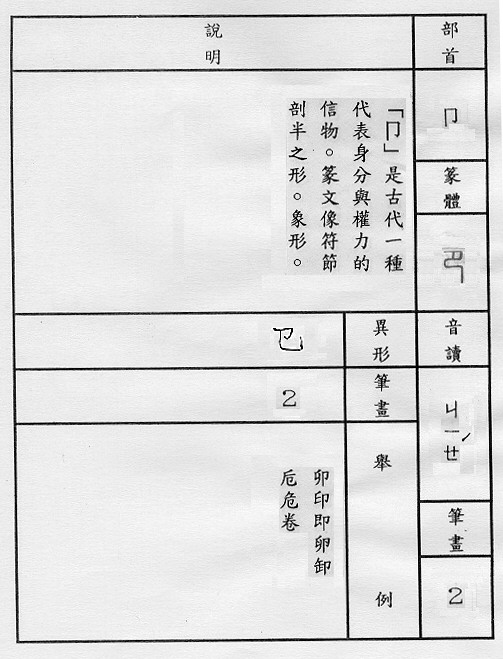 部首
卩
篆體
音讀
ㄐㄧㄝˊ
筆畫
2
說明
「卩」是古代一種
代表身分與權力的
信物。篆文像符節
剖半之形。象形。
異形
㔾
筆畫
2
舉例
卯印即卵卸
卮危卷